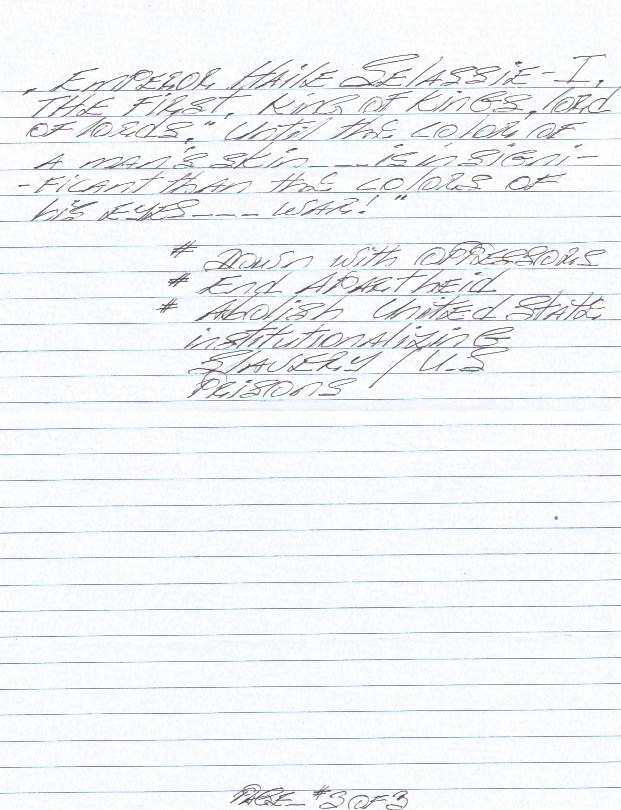 . Emperor Haile Selassie - I.
The First. King of Kings. lord
of lords." Until the color of
a man's skin _ _ _ is insigni-
-ficant than the colors of
his eyes _ _ _ _ war! "
# Down with oppressors
# End Apartheid
# Abolish United State
institutionalizing
Slavery / U.S
Prisons
Page #3 of 3